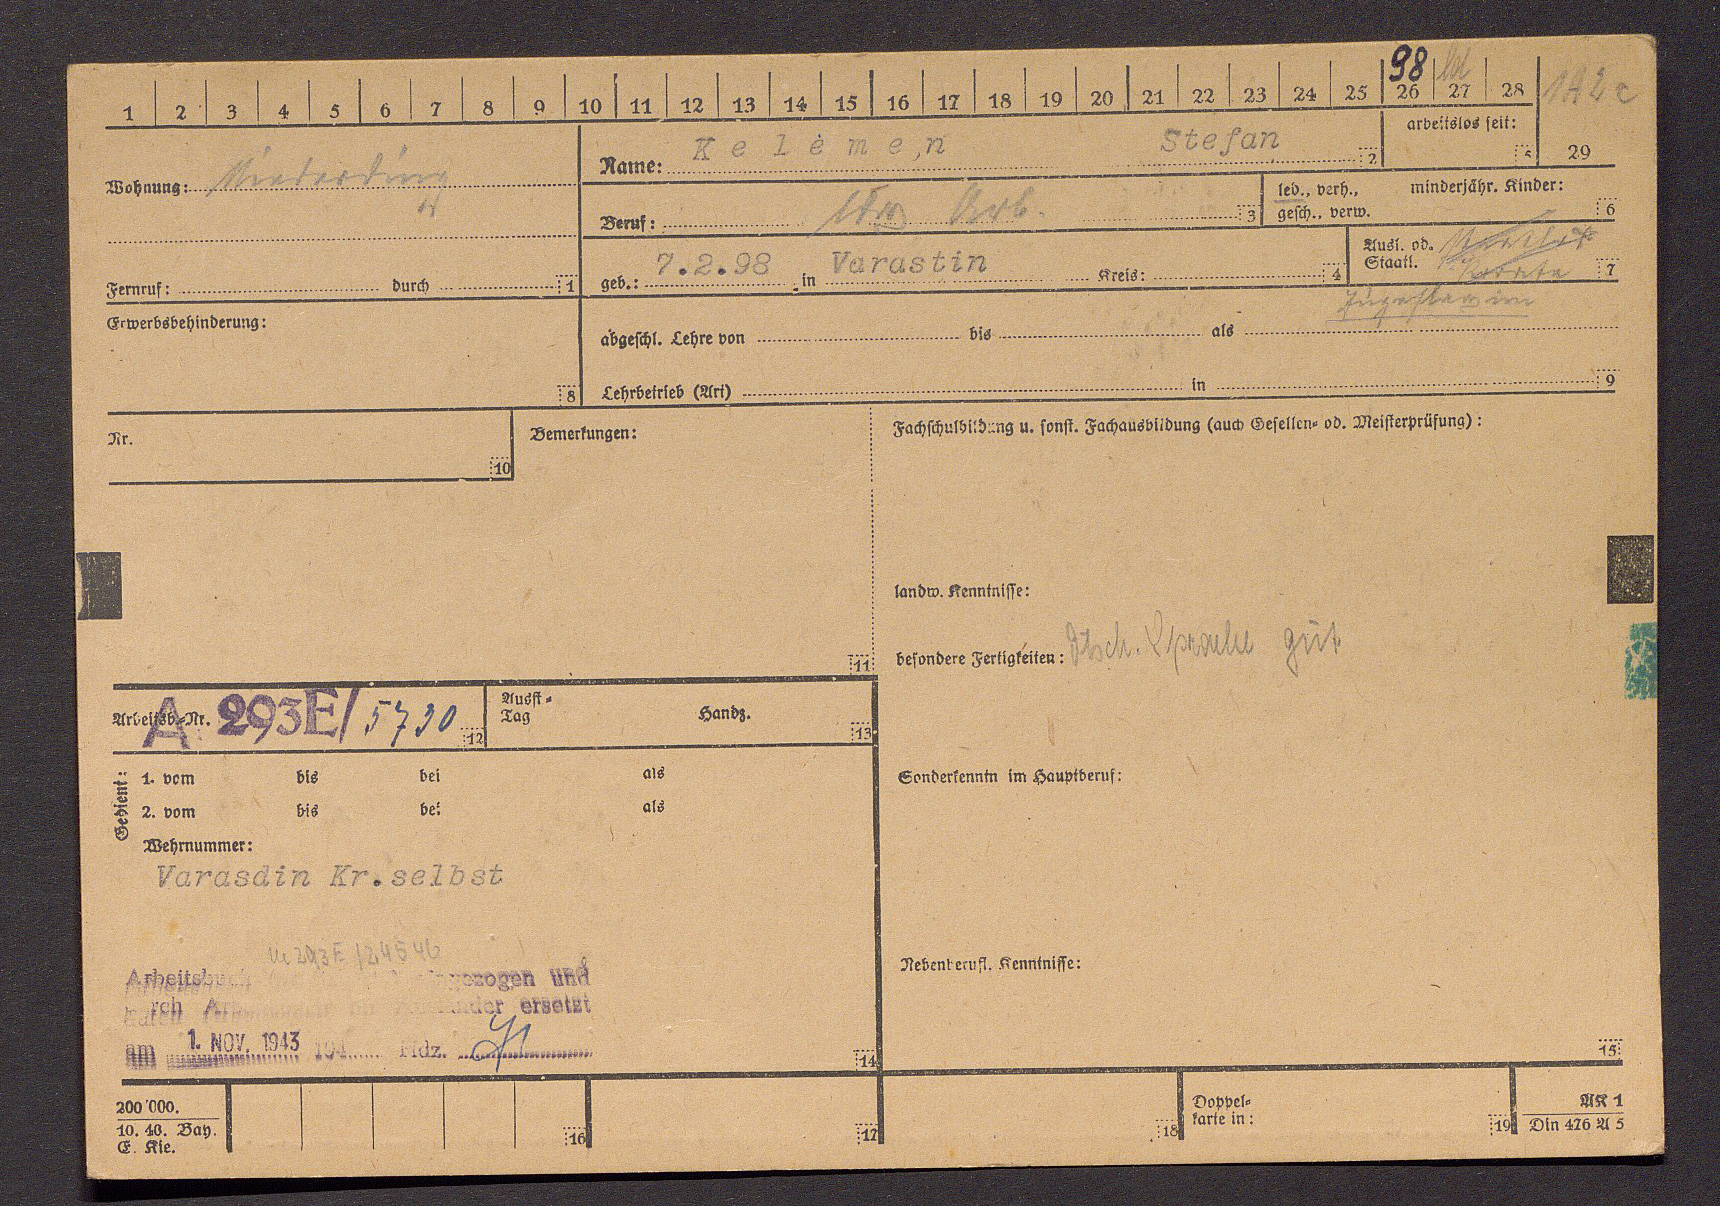 98
1 2 3 4 5 6 7 8 9 10 11 12 13 14 15 16 17 18 19 20 21 22 23 24 25 26 27 28
29
arbeitslos seit: 5
Name: Kelemen, Stefan 2
Wohnung: Niederding
Beruf: ldw Arb. 3
led., verh., gesch., verw.
minderjähr. Kinder: 6
geb.: 7.2.98 in Varastin Kreis: 4
Ausl. od. Staatl. Kroate 7
Jugoslawien
Fernruf: durch 1
Erwerbsbehinderung: 8
abgeschl. Lehre von bis als
Lehrbetrieb (Art) in 9
Nr. 10
Bemerkungen: 11
Fachschulbildung u. sonst. Fachausbildung (auch Gesellen- od. Meisterprüfung):
landw. Kenntnisse:
besondere Fertigkeiten: dtsch. Sprache gut
Arbeitsb.-Nr. A 293E/5790 12
Ausst-Tag Handz. 13
Gedient:
1. vom bis bei als
2. vom bis bei als
Wehrnummer:
Varasdin Kr.selbst
Sonderkenntn im Hauptberuf:
293E/24546
Nebenberufl. Kenntnisse: 15
Arbeitsbuch eingezogen und
ersetzt
am 1. NOV. 1943 194 Hdz.
14
200 000.
10. 40. Bay.
E. Kie.
16 17 18
Doppelkarte in: 19
AK 1
Din 476 A 5